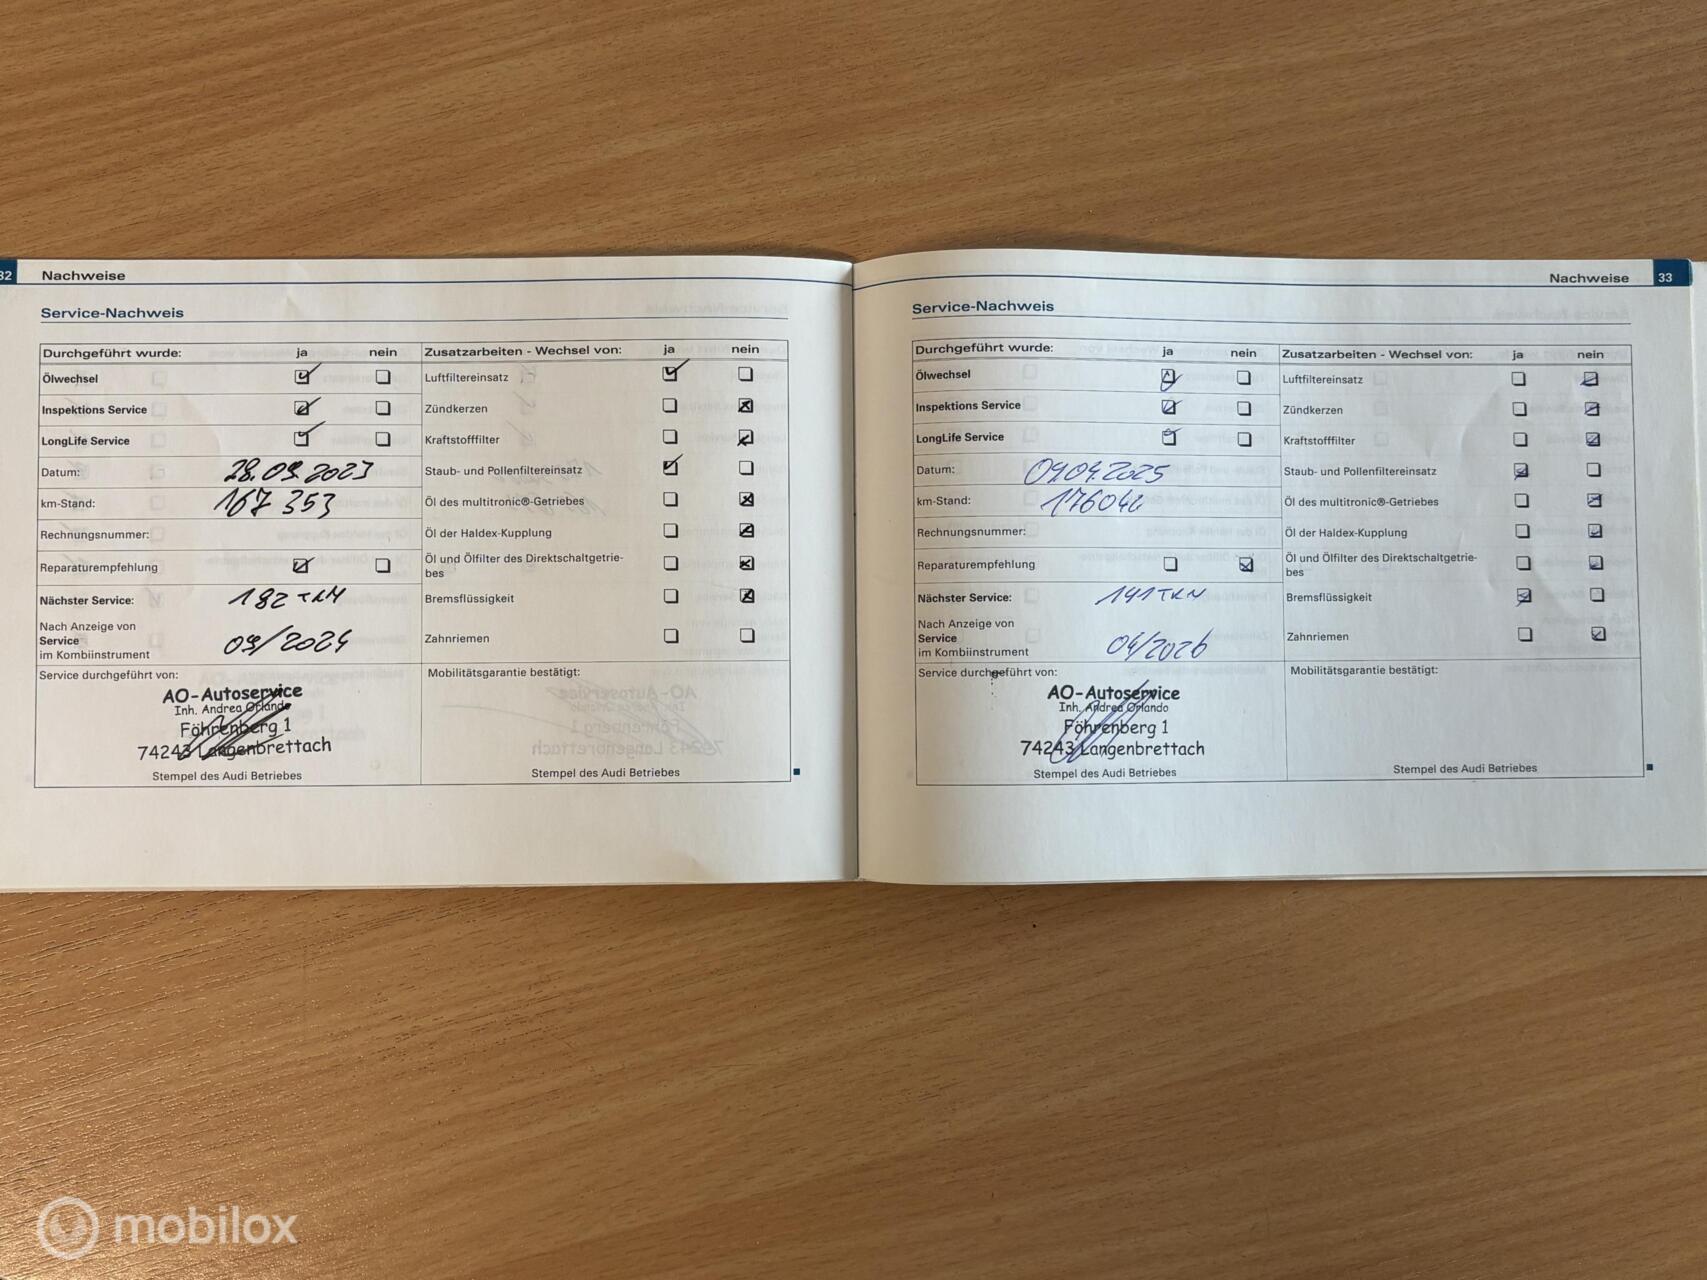 32 Nachweise
Service-Nachweis
Durchgeführt wurde: ja nein
Ölwechsel
Inspektions Service
LongLife Service
Datum: 28.09.2023
km-Stand: 167 353
Rechnungsnummer:
Reparaturempfehlung
Nächster Service: 182 TKM
Nach Anzeige von
Service
im Kombiinstrument 09/2024
Service durchgeführt von:
AO-Autoservice
Inh. Andrea Orlando
Föhrenberg 1
74243 Langenbrettach
Stempel des Audi Betriebes
Zusatzarbeiten - Wechsel von: ja nein
Luftfiltereinsatz
Zündkerzen
Kraftstofffilter
Staub- und Pollenfiltereinsatz
Öl des multitronic®-Getriebes
Öl der Haldex-Kupplung
Öl und Ölfilter des Direktschaltgetrie-
bes
Bremsflüssigkeit
Zahnriemen
Mobilitätsgarantie bestätigt:
Stempel des Audi Betriebes
Nachweise 33
Service-Nachweis
Durchgeführt wurde: ja nein
Ölwechsel
Inspektions Service
LongLife Service
Datum:
km-Stand:
Rechnungsnummer:
Reparaturempfehlung
Nächster Service: 191 TKM
Nach Anzeige von
Service
im Kombiinstrument 04/2026
Service durchgeführt von:
AO-Autoservice
Inh. Andrea Orlando
Föhrenberg 1
74243 Langenbrettach
Stempel des Audi Betriebes
Zusatzarbeiten - Wechsel von: ja nein
Luftfiltereinsatz
Zündkerzen
Kraftstofffilter
Staub- und Pollenfiltereinsatz
Öl des multitronic®-Getriebes
Öl der Haldex-Kupplung
Öl und Ölfilter des Direktschaltgetrie-
bes
Bremsflüssigkeit
Zahnriemen
Mobilitätsgarantie bestätigt:
Stempel des Audi Betriebes
mobilox